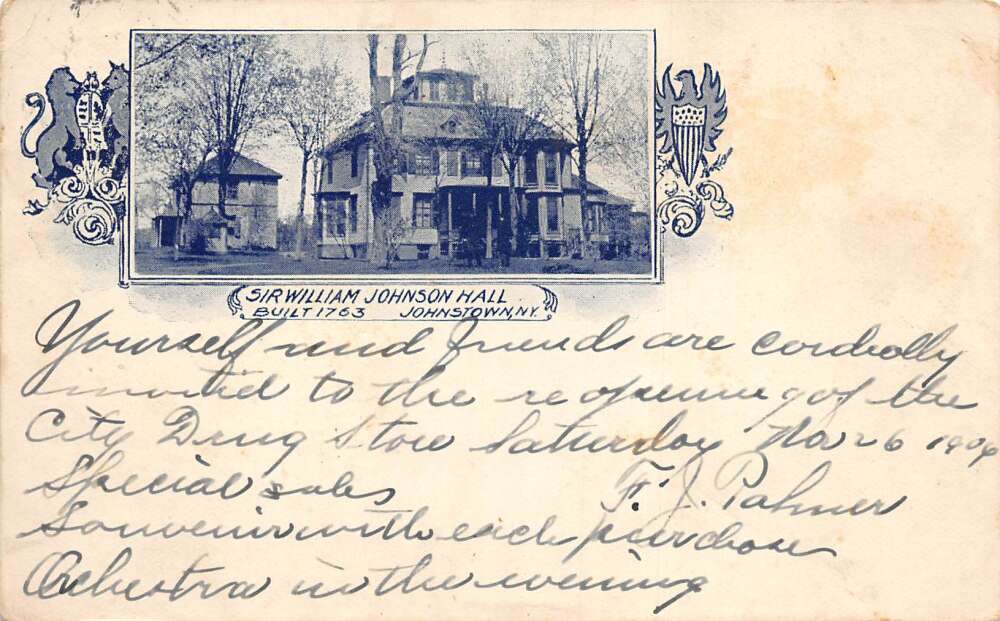 SIR WILLIAM JOHNSON HALL
BUILT 1763 JOHNSTOWN, N.Y.
Yourself and friends are cordially
invited to the re opening of the
City Drug Store Saturday Nov 26 1904
Special sales F. J. Palmer
Souvenir with each purchase
Orchestra in the evening